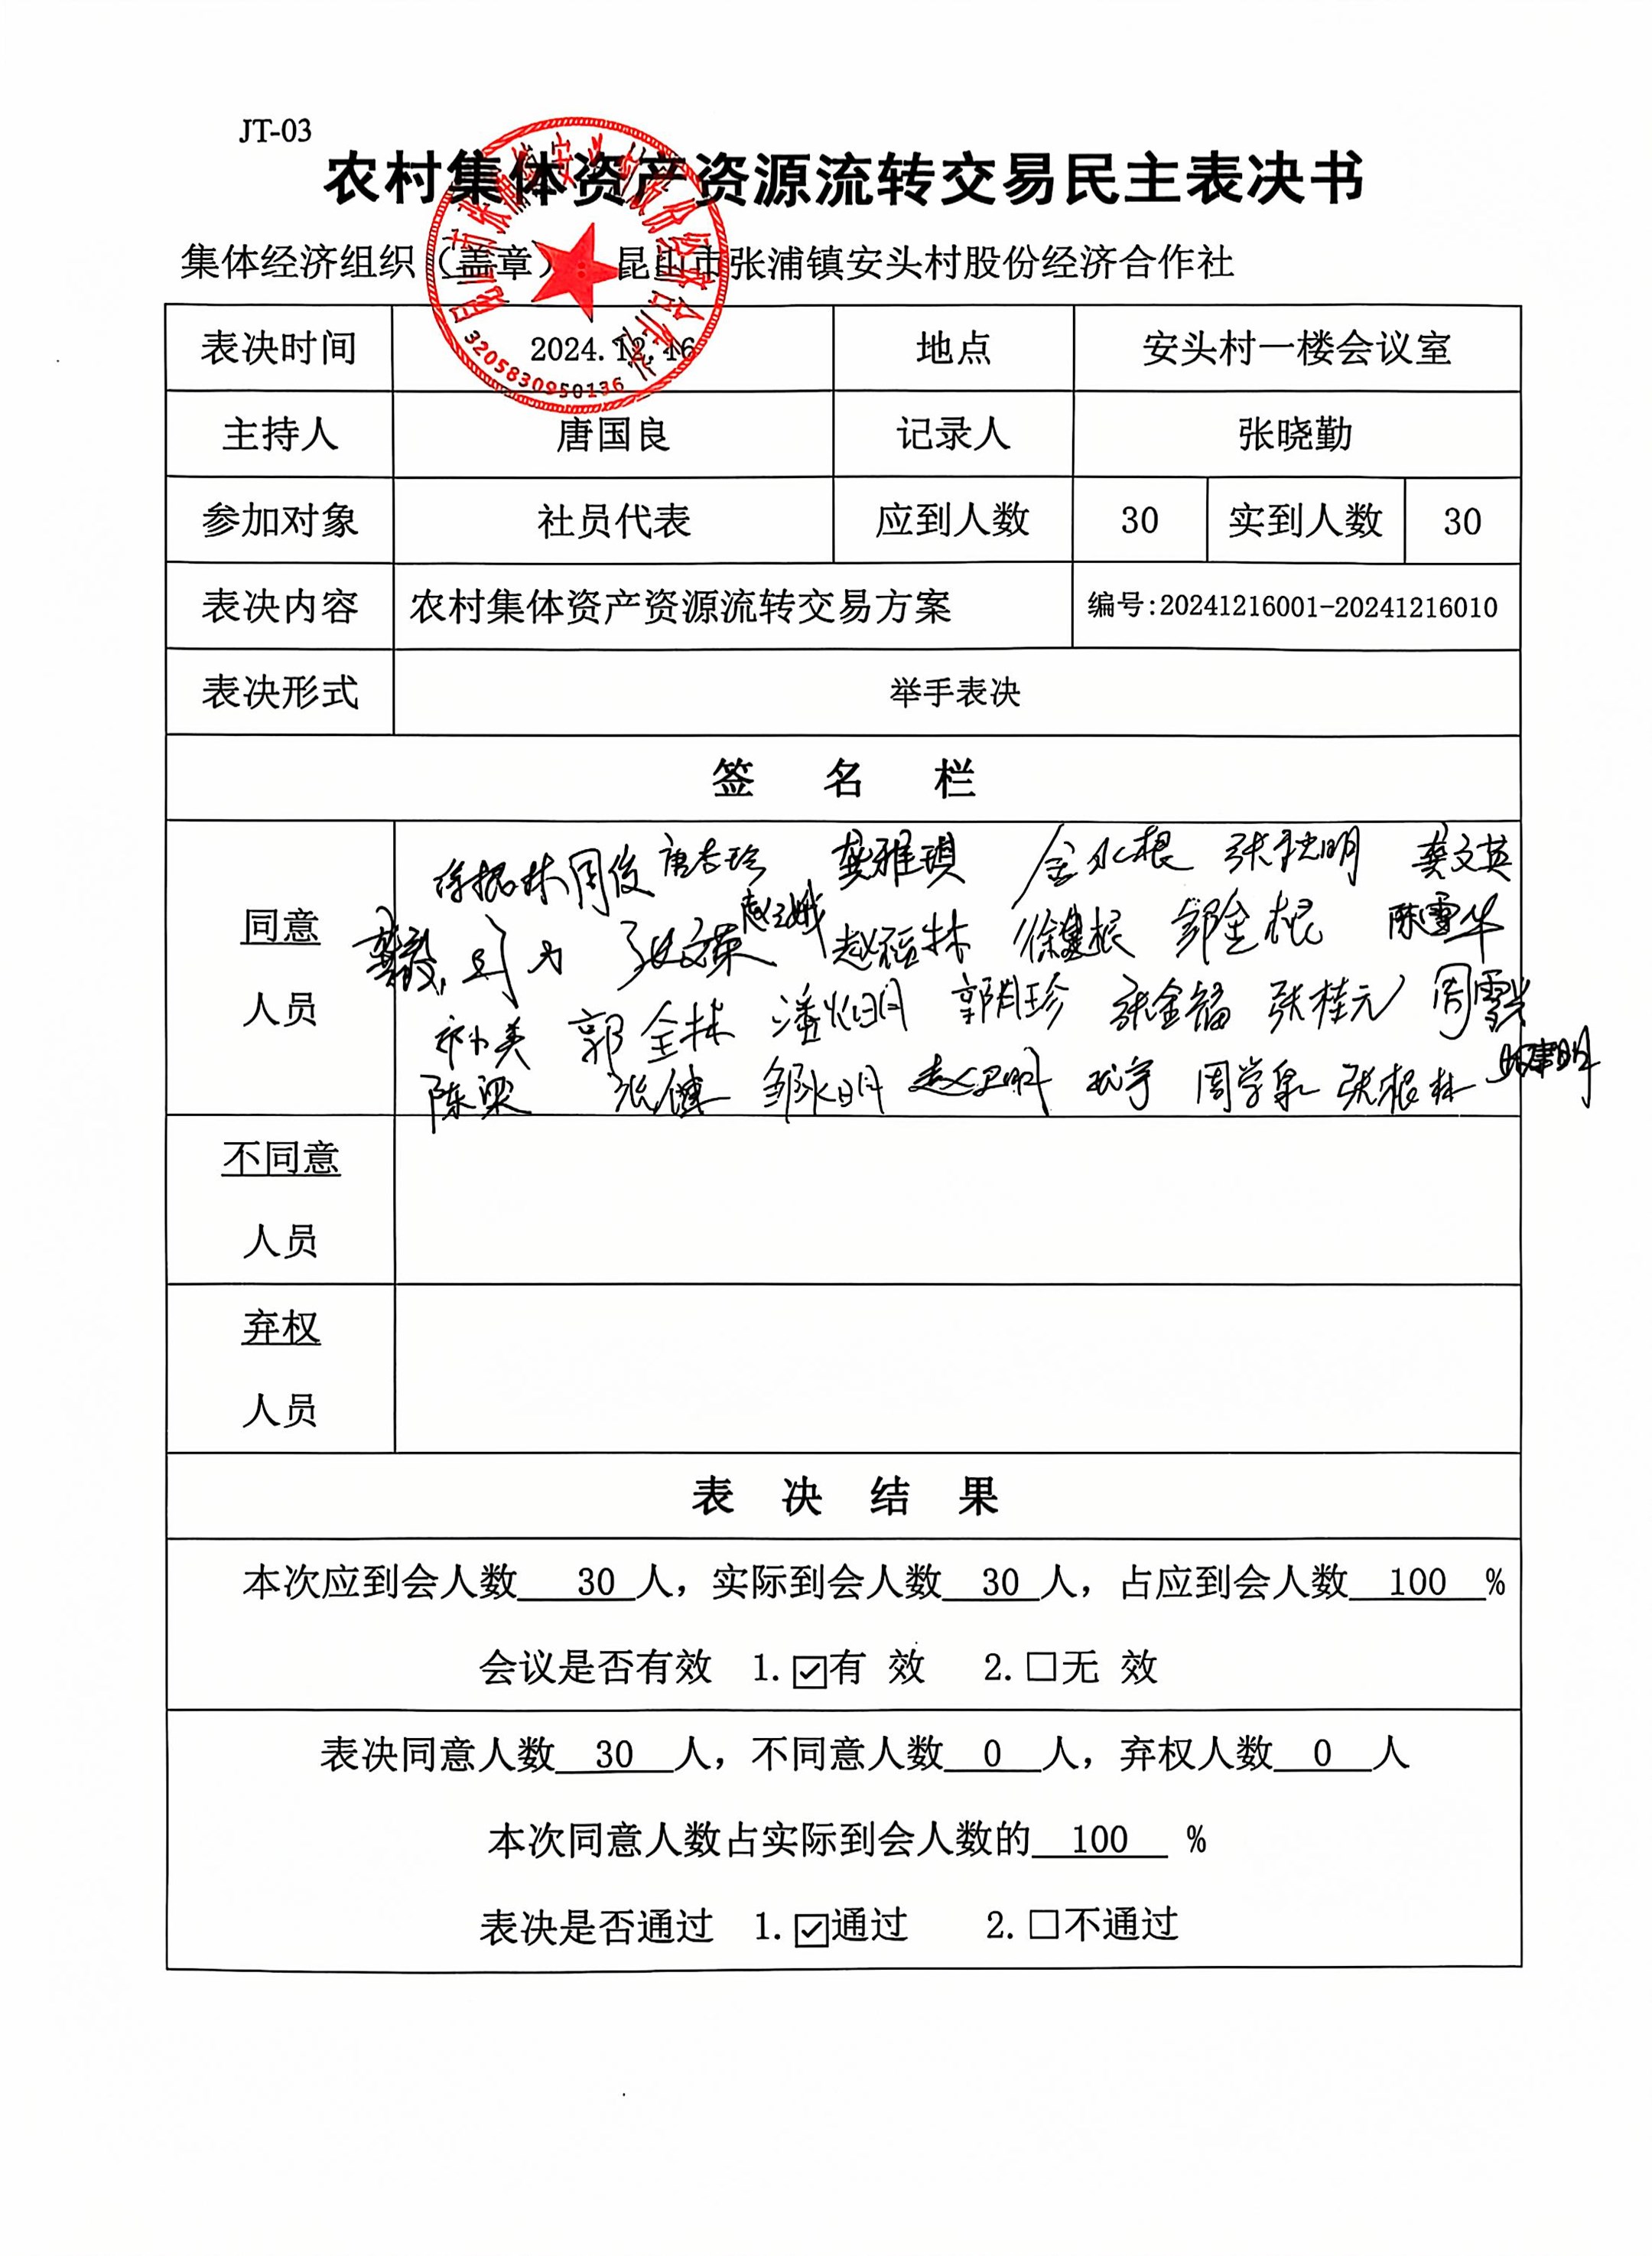 JT-03
农村集体资产资源流转交易民主表决书
集体经济组织(盖章) 昆山市张浦镇安头村股份经济合作社
3205830950136
表决时间 2024.12.16 地点 安头村一楼会议室
主持人 唐国良 记录人 张晓勤
参加对象 社员代表 应到人数 30 实到人数 30
表决内容 农村集体资产资源流转交易方案 编号:20241216001-20241216010
表决形式 举手表决
签 名 栏
同意
人员
徐振林 周俊 唐杏珍 龚雅琪 金水根 龚文英
赵福林 徐建根 郭金根 陈雪华
郭全林 张桂元 周雪兴
陈梁 张健 邹水明 赵卫明 周学泉 张根林
不同意
人员
弃权
人员
表 决 结 果
本次应到会人数 30 人，实际到会人数 30 人，占应到会人数 100 %
会议是否有效 1.☑有 效 2.☐无 效
表决同意人数 30 人，不同意人数 0 人，弃权人数 0 人
本次同意人数占实际到会人数的 100 %
表决是否通过 1.☑通过 2.☐不通过